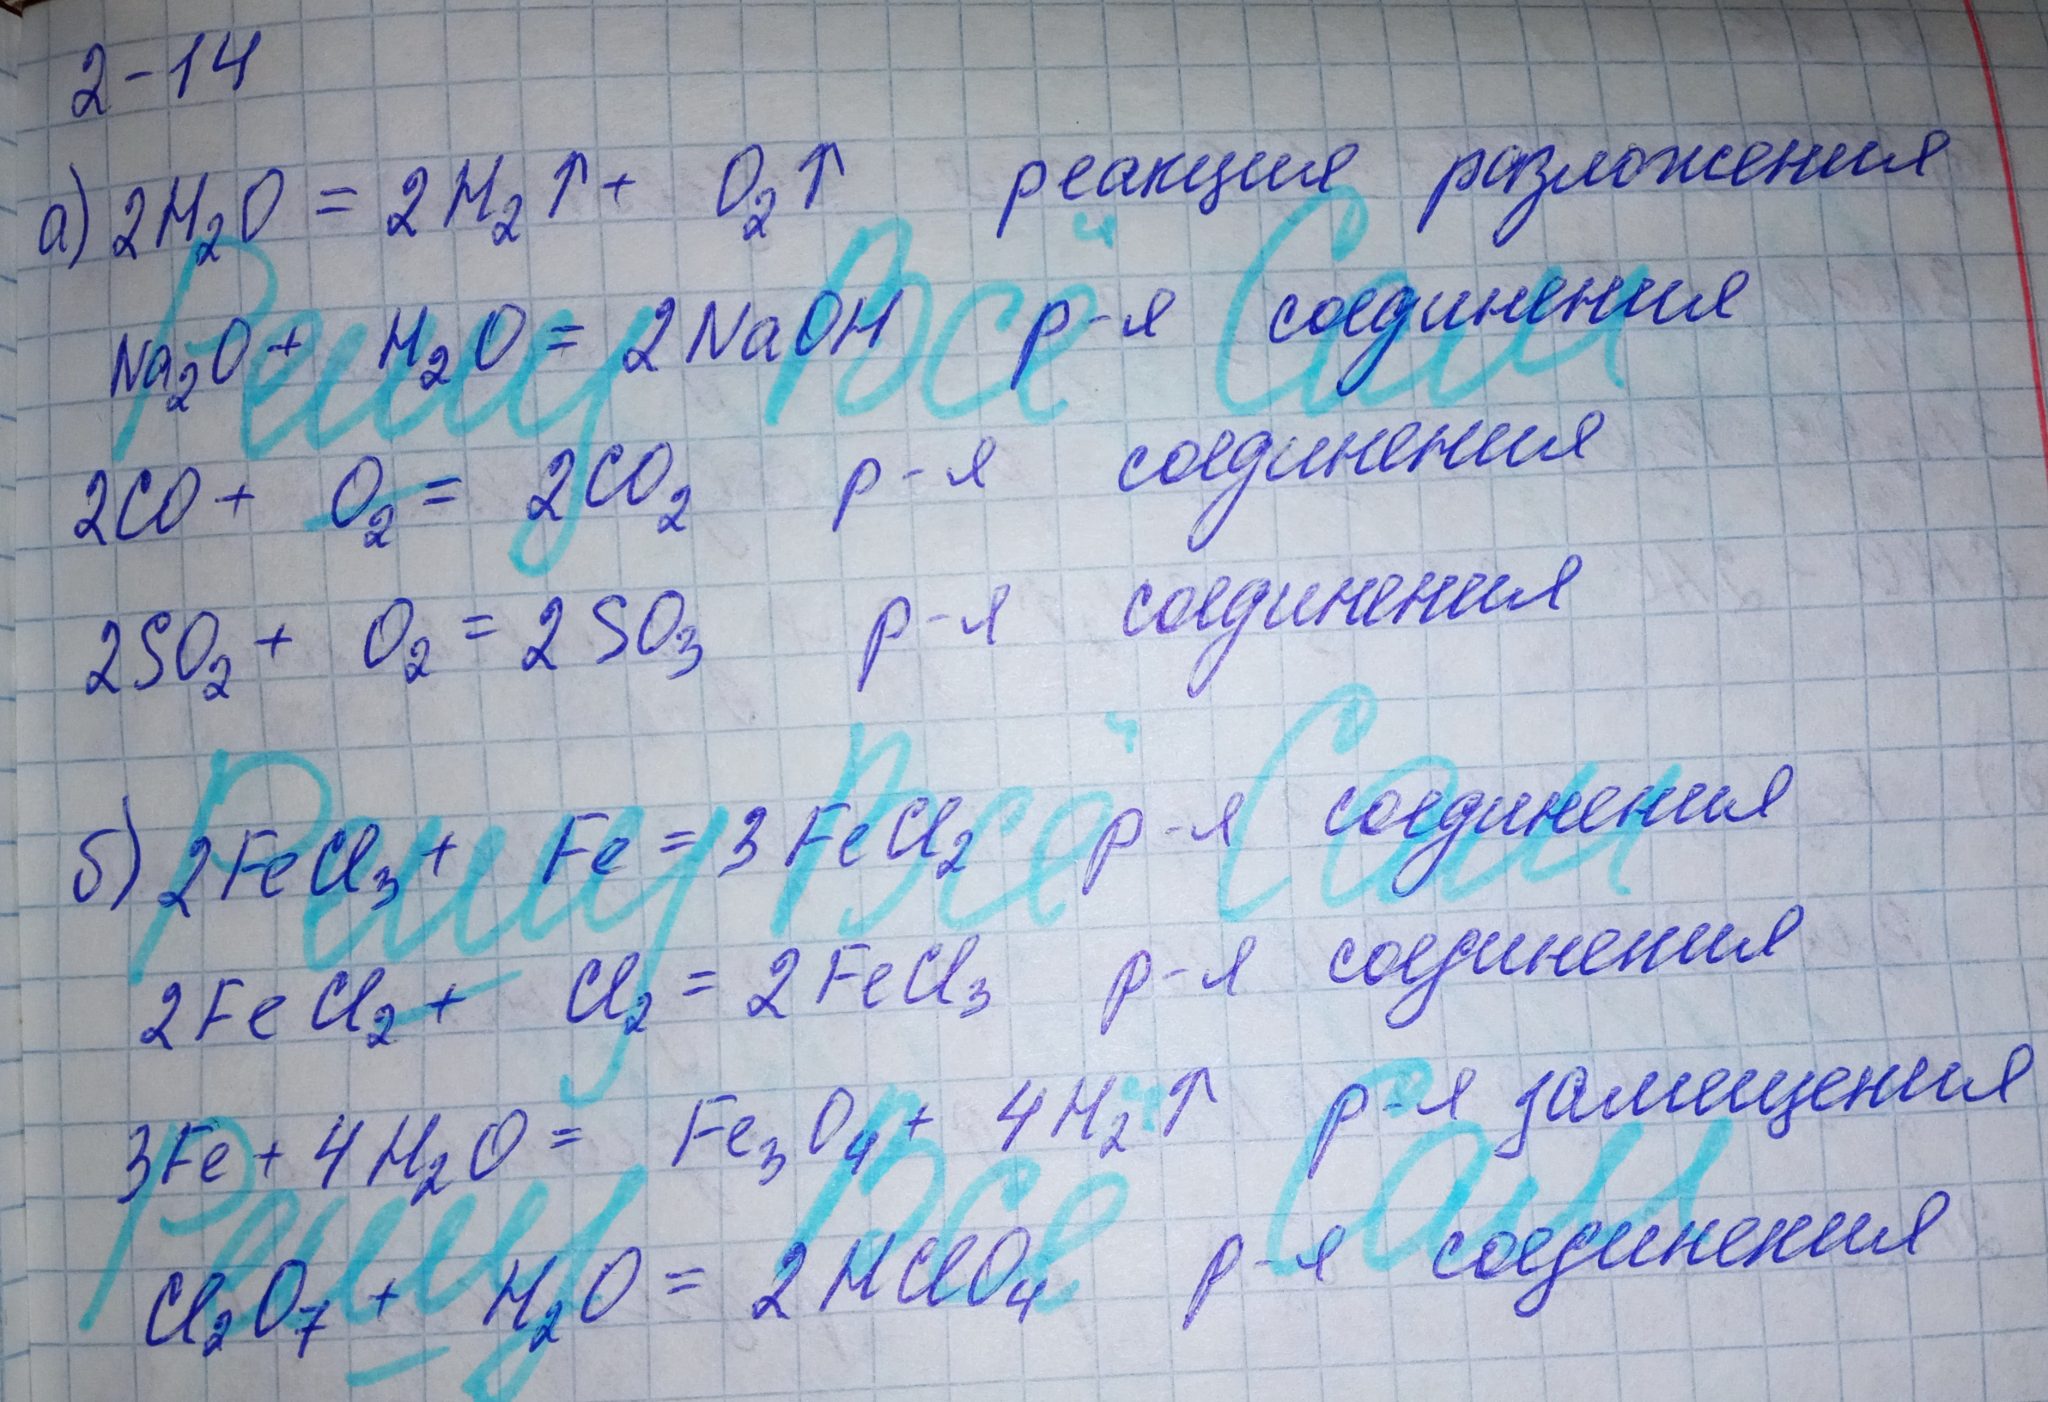 2-14
а) 2H₂O = 2H₂↑ + O₂↑ реакция разложения
Na₂O + H₂O = 2NaOH р-я соединения
2CO + O₂ = 2CO₂ р-я соединения
2SO₂ + O₂ = 2SO₃ р-я соединения
б) 2FeCl₃ + Fe = 3FeCl₂ р-я соединения
2FeCl₂ + Cl₂ = 2FeCl₃ р-я соединения
3Fe + 4H₂O = Fe₃O₄ + 4H₂↑ р-я замещения
Cl₂O₇ + H₂O = 2HClO₄ р-я соединения
Решу Всё Сам
Решу Всё Сам
Решу Всё Сам